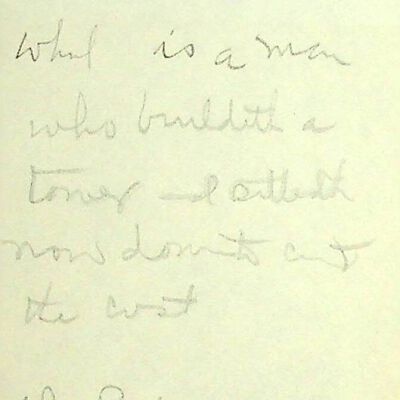 What is a man
who buildeth a
tower and sitteth
now down to count
the cost